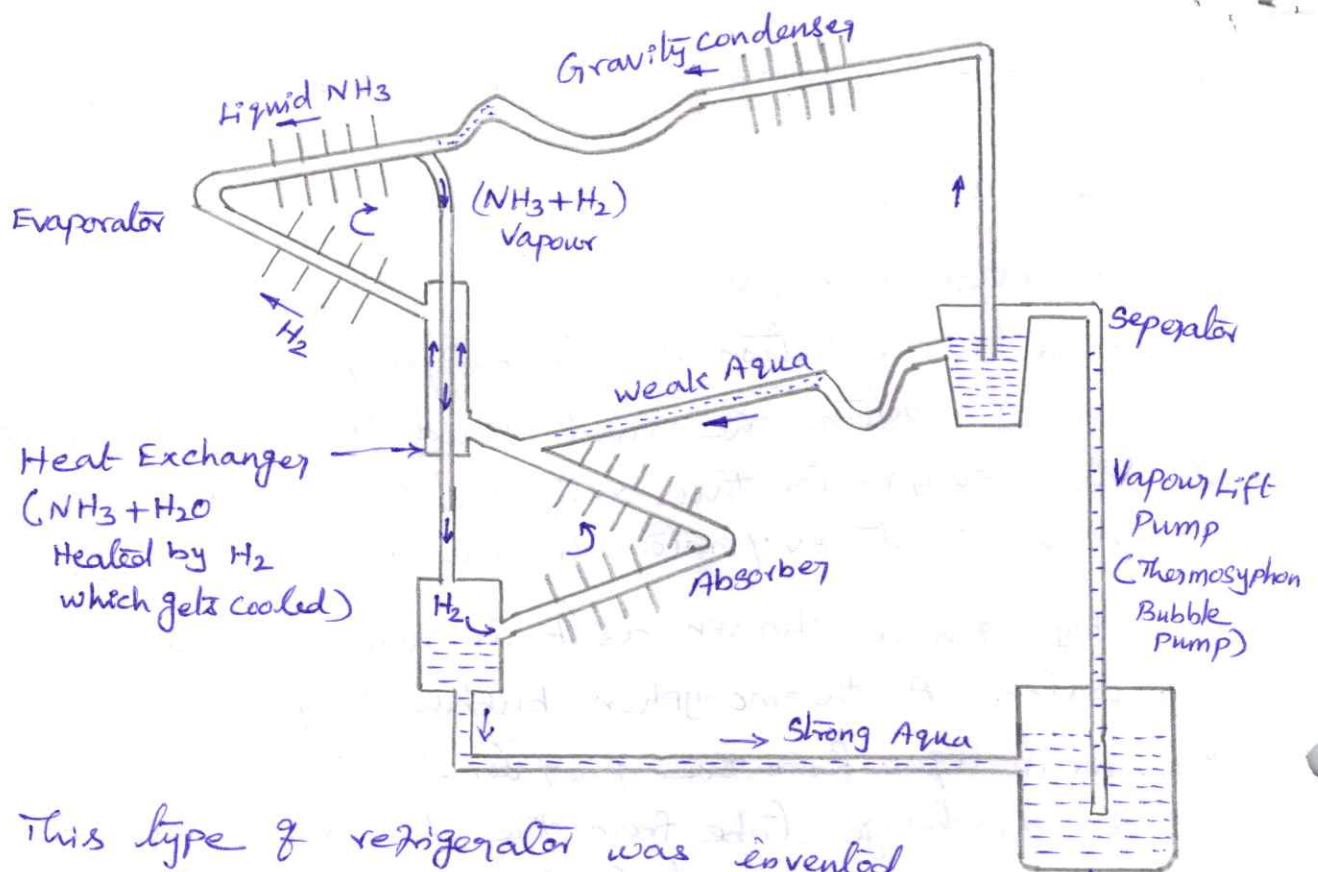 Gravity condenser
Liquid NH3
Evaporator
(NH3+H2)
Vapour
H2
Seperator
Weak Aqua
Heat Exchanger
(NH3+H2O
Heated by H2
which gets cooled)
Vapour Lift
Pump
(Thermosyphon
Bubble
Pump)
Absorber
H2
Strong Aqua
This type of refrigerator was invented